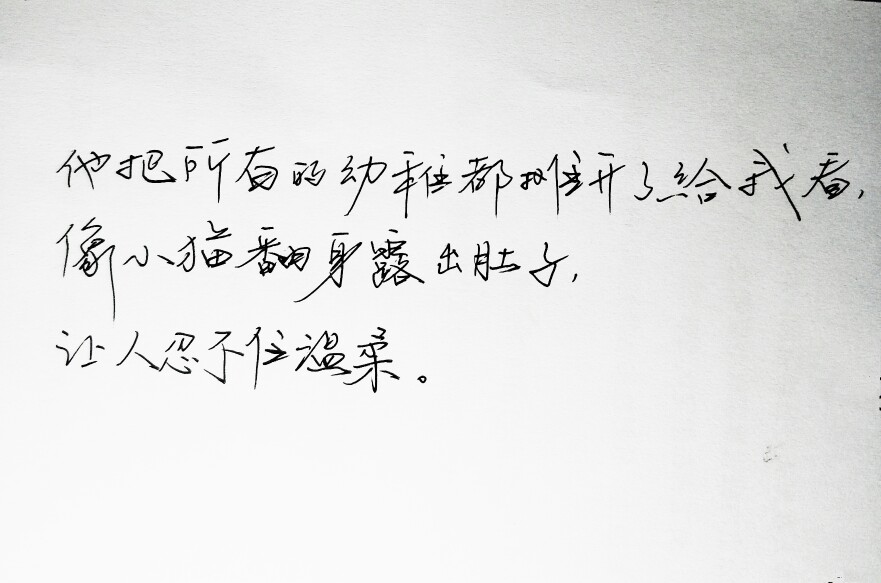 他把所有的幼稚都摊开了给我看，
像小猫翻身露出肚子，
让人忍不住温柔。